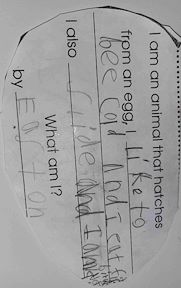 I am an animal that hatches
from an egg. I Like to
bee Cold And I eat
I also Slide and
What am I?
by Easton